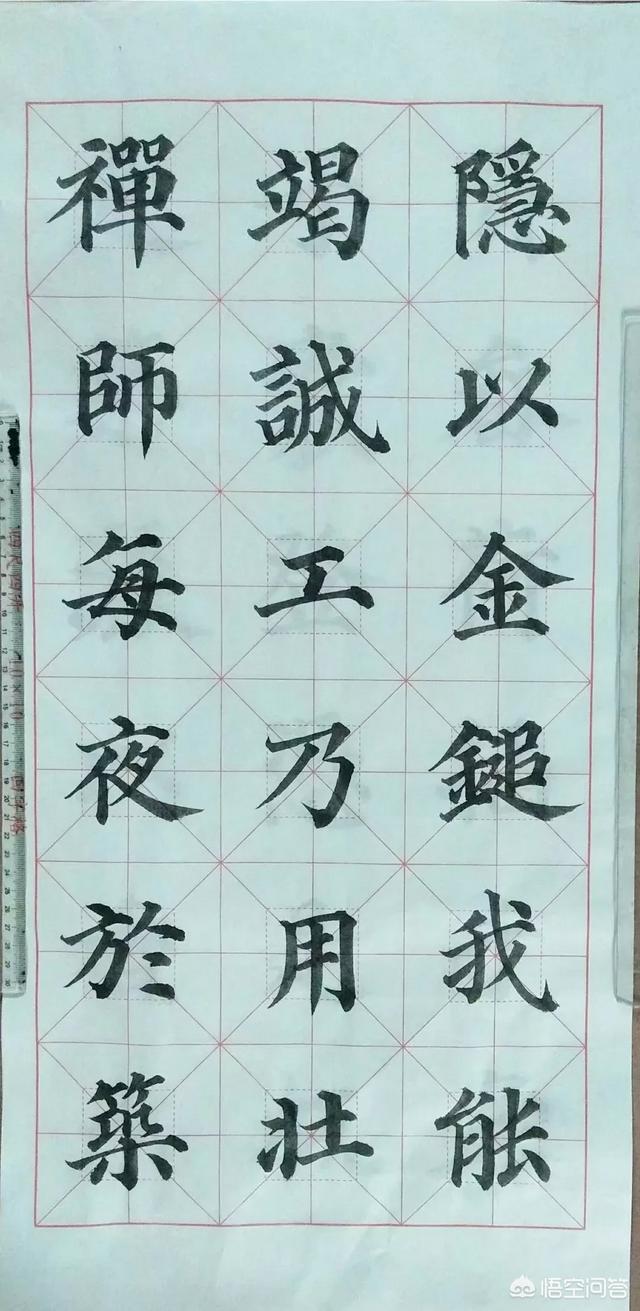 隱以金鎚我能
竭誠工乃用壯
禪師每夜於築
悟空问答